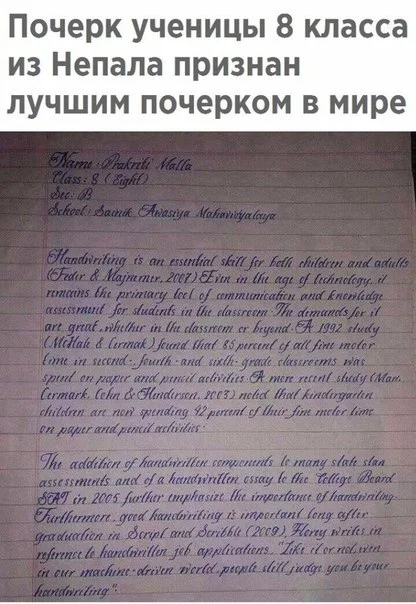 Почерк ученицы 8 класса
из Непала признан
лучшим почерком в мире
Name : Prakriti Malla
Class : 8 (Eight)
Sec : B
School : Sainik Awasiya Mahavidyalaya
Handwriting is an essential skill for both children and adults
(Feder & Majnemer, 2007) Even in the age of technology, it
remains the primary tool of communication and knowledge
assessment for students in the classroom The demands for it
are great, whether in the classroom or beyond A 1992 study
(McHale & Cermak) found that 85 percent of all fine motor
time in second-, fourth- and sixth- grade classrooms was
spent on paper and pencil activities A more recent study (Marr,
Cermark, Cohn & Henderson, 2003) noted that kindergarten
children are now spending 42 percent of their fine motor time
on paper and pencil activities.
The addition of handwritten components to many state
assessments and of a handwritten essay to the College Board
SAT in 2005 further emphasize the importance of handwriting.
Furthermore, good handwriting is important long after
graduation in Script and Scribble (2009), Florey writes in
reference to handwritten job applications, "Like it or not, even
in our machine-driven world, people still judge you be your
handwriting".